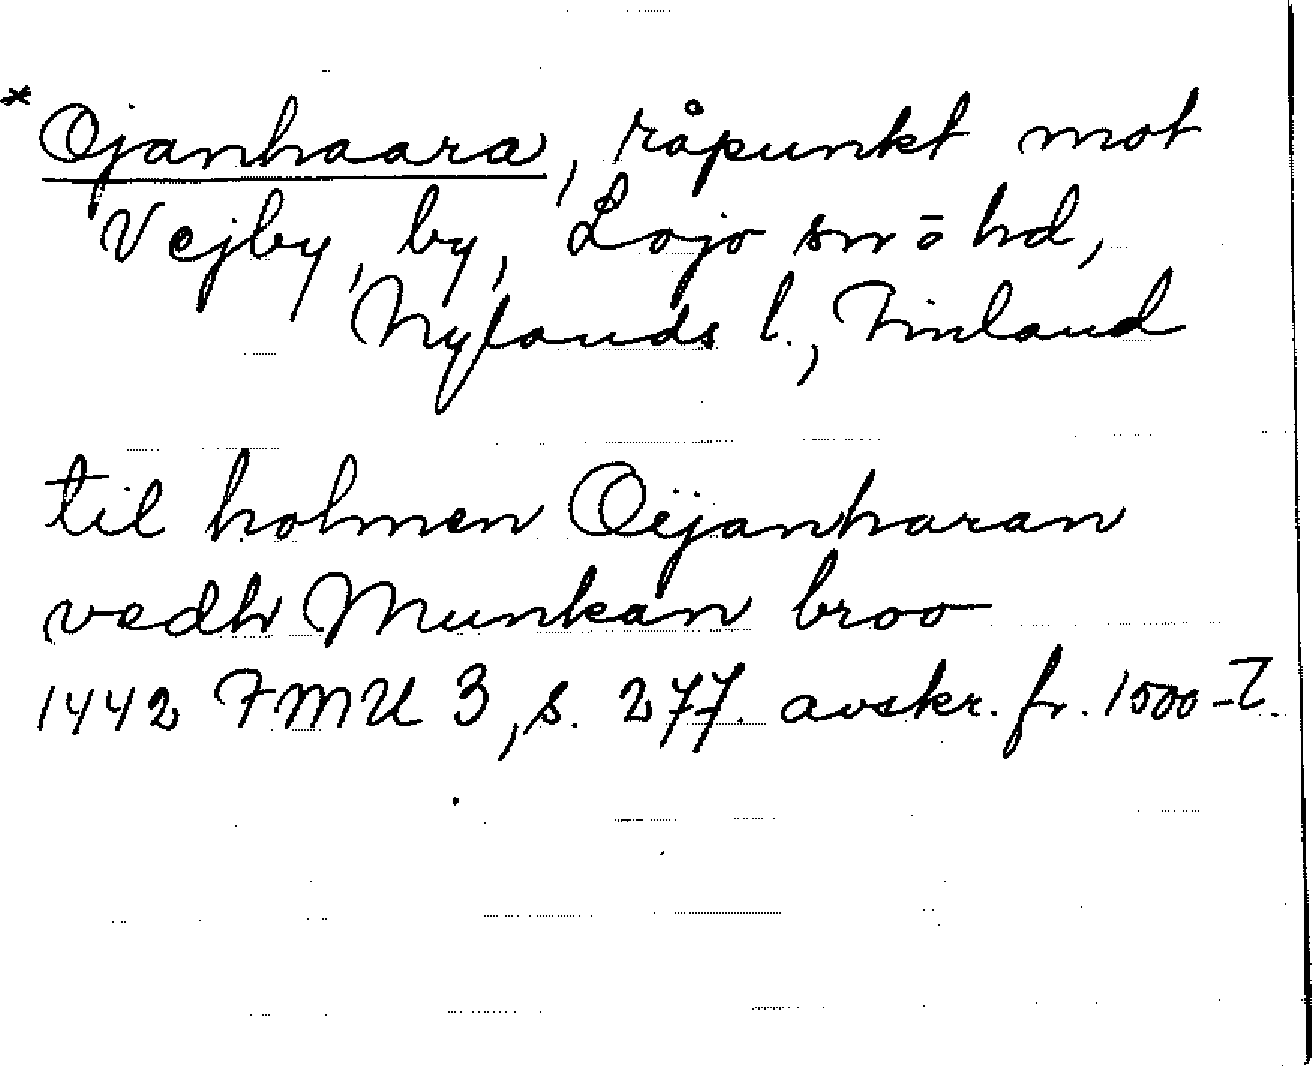 * Ojanhaara, råpunkt mot
Vejby, by, Lojo sn ō hd,
Nylands l., Finland
til holmen Oijanharan
vedh Munkan broo
1442 FMU 3, s. 277. avskr. fr. 1500-t.